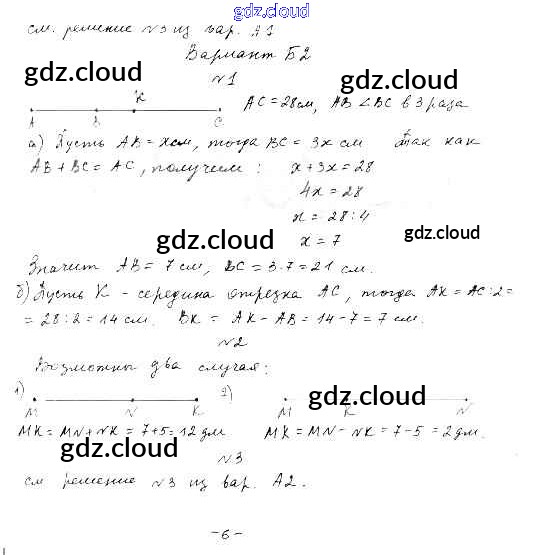 gdz.cloud
см. решение №3 из вар. А1
Вариант Б2
№1
gdz.cloud
gdz.cloud
K
A B C
AC = 28 см, AB < BC в 3 раза
а) Пусть AB = x см, тогда BC = 3x см Так как
AB + BC = AC, получаем: x + 3x = 28
4x = 28
x = 28 : 4
x = 7
gdz.cloud
gdz.cloud
Значит AB = 7 см, BC = 3·7 = 21 см.
б) Пусть K - середина отрезка AC, тогда AK = AC : 2 =
= 28 : 2 = 14 см. BK = AK - AB = 14 - 7 = 7 см.
№2
Возможны два случая:
1) 2)
gdz.cloud
M N K M K N
MK = MN + NK = 7 + 5 = 12 дм MK = MN - NK = 7 - 5 = 2 дм.
gdz.cloud
№3
gdz.cloud
см решение №3 из вар. А2.
-6-